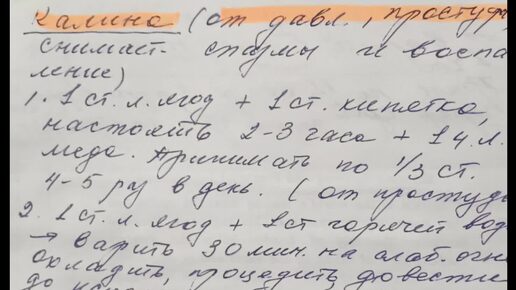 Калина (от давл., простуды,
снимает- спазмы и воспа
ление)
1. 1 ст. л. ягод + 1 ст. кипятка,
настоять 2-3 часа + 1 ч. л.
меда. Принимать по 1/3 ст.
4-5 р у в день. (от простуды
2. 1 ст. л. ягод + 1 ст горячей вод
→ варить 30 мин. на слаб. огне
охладить, процедить, довести
до